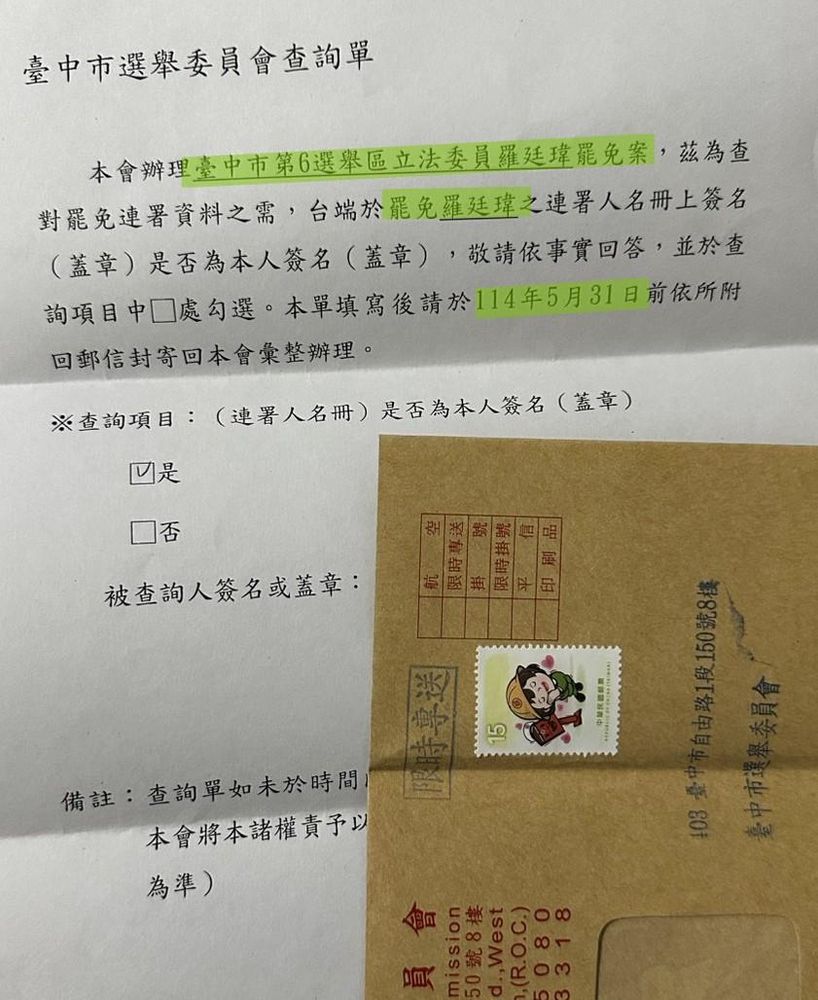 臺中市選舉委員會查詢單
本會辦理臺中市第6選舉區立法委員羅廷瑋罷免案，茲為查
對罷免連署資料之需，台端於罷免羅廷瑋之連署人名冊上簽名
（蓋章）是否為本人簽名（蓋章），敬請依事實回答，並於查
詢項目中□處勾選。本單填寫後請於114年5月31日前依所附
回郵信封寄回本會彙整辦理。
※查詢項目：（連署人名冊）是否為本人簽名（蓋章）
☑是
□否
被查詢人簽名或蓋章：
備註：查詢單如未於時間
本會將本諸權責予以
為準）
航空
限時專送
掛號
限時掛號
平信
印刷品
限時專送
15
中華民國郵票
REPUBLIC OF CHINA (TAIWAN)
403 臺中市自由路1段150號8樓
臺中市選舉委員會
員會
mission
50號8樓
d.,West
n,(R.O.C.)
5080
3318